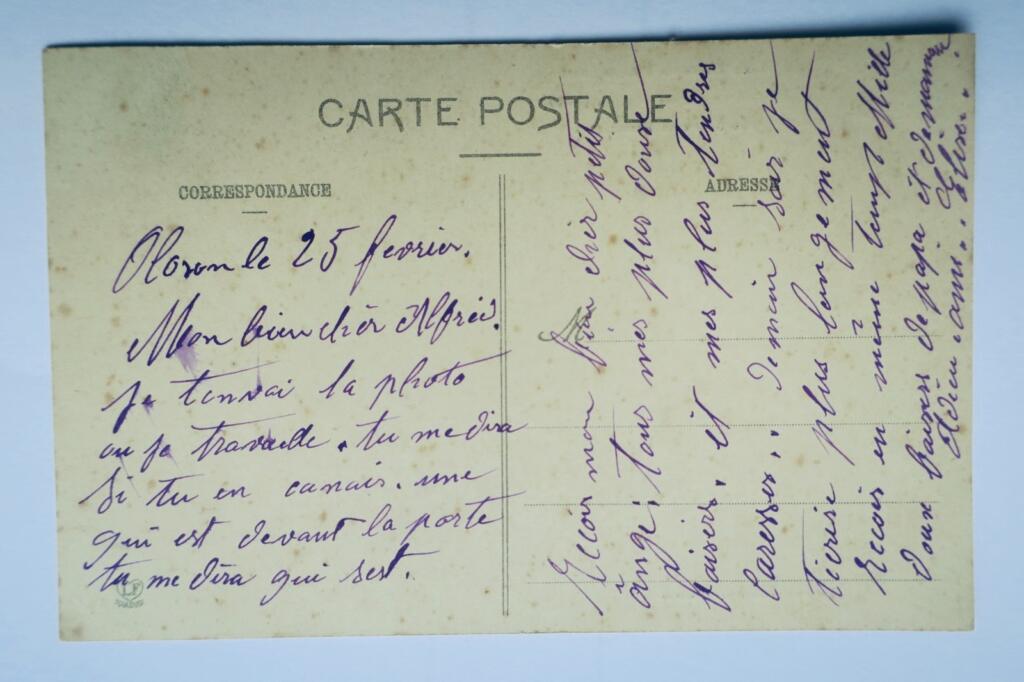 CARTE POSTALE
CORRESPONDANCE
ADRESSE
Oloron le 25 fevrier.
Mon bien chèr Alfred.
Je tenvai la photo
ou je travaille. tu me dira
si tu en conais. une
qui est devant la porte
tu me dira qui sest.
LF
Recois mon bien chèr petit
ânge; tous mes plus doux
baisers. et mes plus tendres
caresses. demain soir je
tierire plus longement
recois en même temps Mille
doux Baisers de papa et de maman
Adieu ami.. Elise.